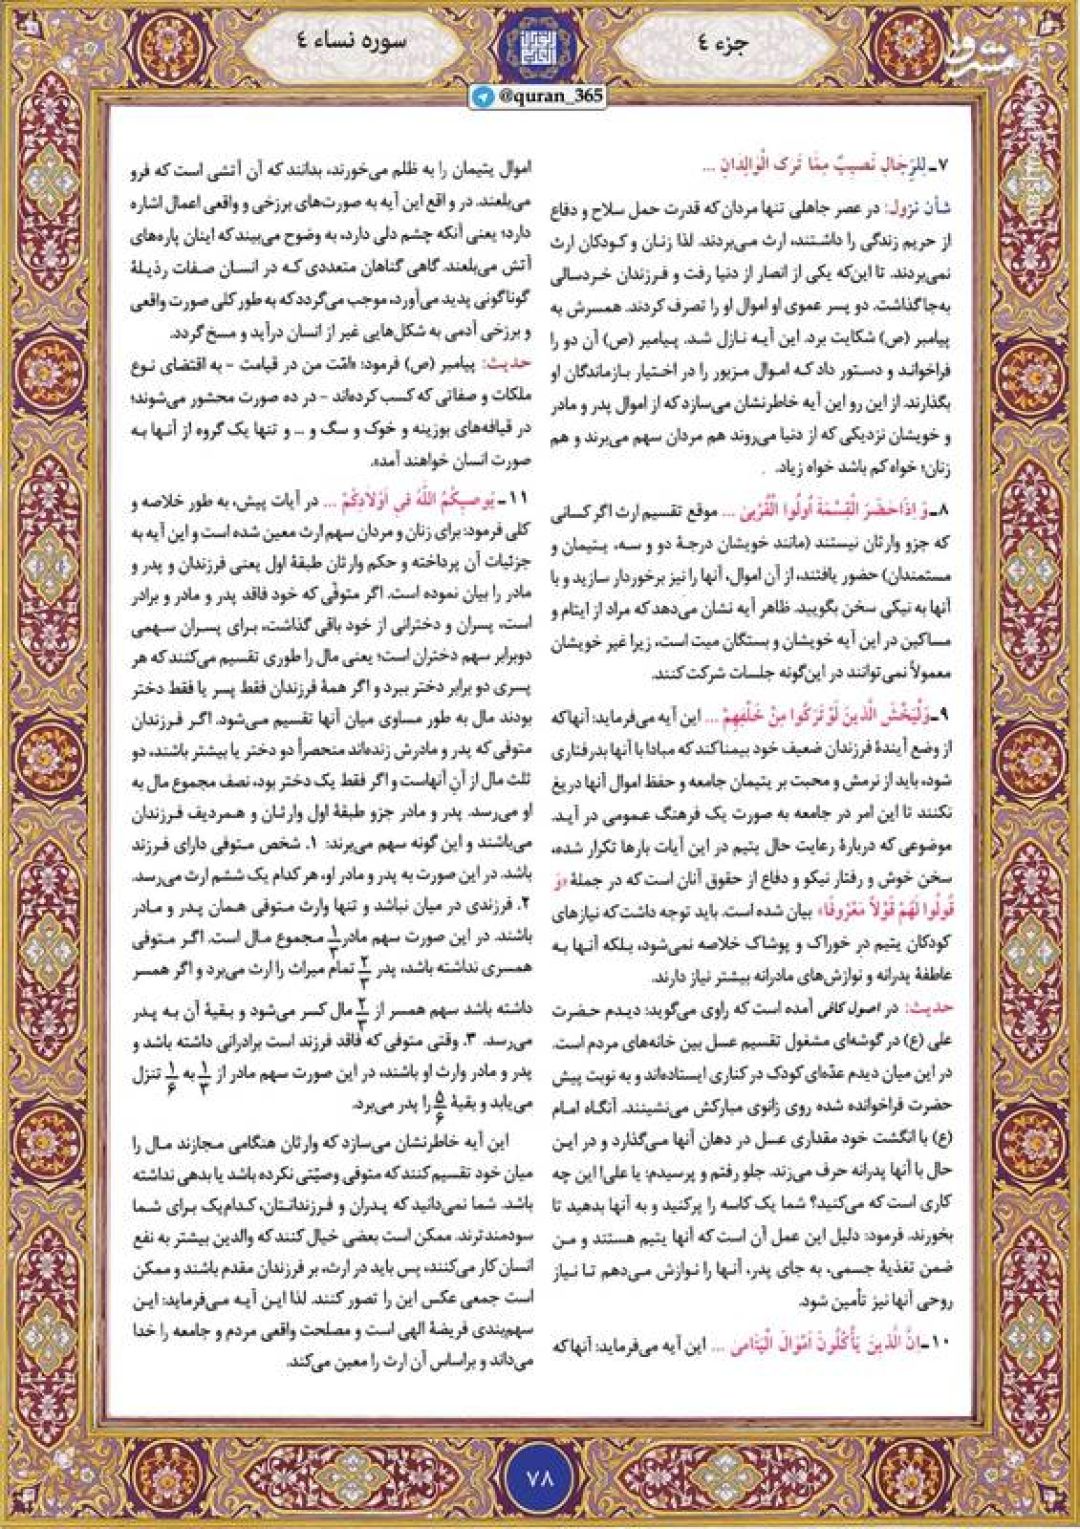 جزء ۴
سوره نساء ۴
@quran_365
مشرق
۷ـ لِلرِّجَالِ نَصِيبٌ مِمَّا تَرَكَ الْوَالِدَانِ ...
شأن نزول: در عصر جاهلی تنها مردان که قدرت حمل سلاح و دفاع
از حریم زندگی را داشتند، ارث می‌بردند. لذا زنان و کودکان ارث
نمی‌بردند. تا این‌که یکی از انصار از دنیا رفت و فرزندان خردسالی
به‌جا گذاشت. دو پسر عموی او اموال او را تصرف کردند. همسرش به
پیامبر (ص) شکایت برد. این آیه نازل شد. پیامبر (ص) آن دو را
فراخواند و دستور داد که اموال مزبور را در اختیار بازماندگان او
بگذارند. از این رو این آیه خاطرنشان می‌سازد که از اموال پدر و مادر
و خویشان نزدیکی که از دنیا می‌روند هم مردان سهم می‌برند و هم
زنان؛ خواه کم باشد خواه زیاد.
۸ـ وَ إِذَا حَضَرَ الْقِسْمَةَ أُولُوا الْقُرْبىٰ ... موقع تقسیم ارث اگر کسانی
که جزو وارثان نیستند (مانند خویشان درجهٔ دو و سه، یتیمان و
مستمندان) حضور یافتند، از آن اموال، آنها را نیز برخوردار سازید و با
آنها به نیکی سخن بگویید. ظاهر آیه نشان می‌دهد که مراد از ایتام و
مساکین در این آیه خویشان و بستگان میت است، زیرا غیر خویشان
معمولاً نمی‌توانند در این‌گونه جلسات شرکت کنند.
۹ـ وَلْيَخْشَ الَّذِينَ لَوْ تَرَكُوا مِنْ خَلْفِهِمْ ... این آیه می‌فرماید: آنها که
از وضع آیندهٔ فرزندان ضعیف خود بیمناکند که مبادا با آنها بدرفتاری
شود، باید از نرمش و محبت بر یتیمان جامعه و حفظ اموال آنها دریغ
نکنند تا این امر در جامعه به صورت یک فرهنگ عمومی در آید.
موضوعی که دربارهٔ رعایت حال یتیم در این آیات بارها تکرار شده،
سخن خوش و رفتار نیکو و دفاع از حقوق آنان است که در جملهٔ «وَ
قُولُوا لَهُمْ قَوْلاً مَعْرُوفًا» بیان شده است. باید توجه داشت که نیازهای
کودکان یتیم در خوراک و پوشاک خلاصه نمی‌شود، بلکه آنها به
عاطفهٔ پدرانه و نوازش‌های مادرانه بیشتر نیاز دارند.
حدیث: در اصول کافی آمده است که راوی می‌گوید: دیدم حضرت
علی (ع) در گوشه‌ای مشغول تقسیم عسل بین خانه‌های مردم است.
در این میان دیدم عدّه‌ای کودک در کناری ایستاده‌اند و به نوبت پیش
حضرت فراخوانده شده روی زانوی مبارکش می‌نشینند. آنگاه امام
(ع) با انگشت خود مقداری عسل در دهان آنها می‌گذارد و در این
حال با آنها پدرانه حرف می‌زند. جلو رفتم و پرسیدم: یا علی! این چه
کاری است که می‌کنید؟ شما یک کاسه را پرکنید و به آنها بدهید تا
بخورند. فرمود: دلیل این عمل آن است که آنها یتیم هستند و من
ضمن تغذیهٔ جسمی، به جای پدر، آنها را نوازش می‌دهم تا نیاز
روحی آنها نیز تأمین شود.
۱۰ـ إِنَّ الَّذِينَ يَأْكُلُونَ أَمْوَالَ الْيَتَامىٰ ... این آیه می‌فرماید: آنها که
اموال یتیمان را به ظلم می‌خورند، بدانند که آن آتشی است که فرو
می‌بلعند. در و اقع این آیه به صورت‌های برزخی و واقعی اعمال اشاره
دارد؛ یعنی آنکه چشم دلی دارد، به وضوح می‌بیند که اینان پاره‌های
آتش می‌بلعند. گاهی گناهان متعددی که در انسان صفات رذیلهٔ
گوناگونی پدید می‌آورد، موجب می‌گردد که به طور کلی صورت واقعی
و برزخی آدمی به شکل‌هایی غیر از انسان درآید و مسخ گردد.
حدیث: پیامبر (ص) فرمود: «امّت من در قیامت - به اقتضای نوع
ملکات و صفاتی که کسب کرده‌اند - در ده صورت محشور می‌شوند؛
در قیافه‌های بوزینه و خوک و سگ و ... و تنها یک گروه از آنها به
صورت انسان خواهند آمد».
۱۱ـ يُوصِيكُمُ اللَّهُ فِي أَوْلَادِكُمْ ... در آیات پیش، به طور خلاصه و
کلی فرمود: برای زنان و مردان سهم ارث معین شده است و این آیه به
جزئیات آن پرداخته و حکم وارثان طبقهٔ اول یعنی فرزندان و پدر و
مادر را بیان نموده است. اگر متوفّی که خود فاقد پدر و مادر و برادر
است، پسران و دخترانی از خود باقی گذاشت، برای پسران سهمی
دوبرابر سهم دختران است؛ یعنی مال را طوری تقسیم می‌کنند که هر
پسری دو برابر دختر ببرد و اگر همهٔ فرزندان فقط پسر یا فقط دختر
بودند مال به طور مساوی میان آنها تقسیم می‌شود. اگر فرزندان
متوفی که پدر و مادرش زنده‌اند منحصراً دو دختر یا بیشتر باشند، دو
ثلث مال از آنِ آنهاست و اگر فقط یک دختر بود، نصف مجموع مال به
او می‌رسد. پدر و مادر جزو طبقهٔ اول وارثان و همردیف فرزندان
می‌باشند و این گونه سهم می‌برند: ۱. شخص متوفی دارای فرزند
باشد. در این صورت به پدر و مادر او، هر کدام یک ششم ارث می‌رسد.
۲. فرزندی در میان نباشد و تنها وارث متوفی همان پدر و مادر
باشند. در این صورت سهم مادر ۱/۳ مجموع مال است. اگر متوفی
همسری نداشته باشد، پدر ۲/۳ تمام میراث را ارث می‌برد و اگر همسر
داشته باشد سهم همسر از ۲/۳ مال کسر می‌شود و بقیهٔ آن به پدر
می‌رسد. ۳. وقتی متوفی که فاقد فرزند است برادرانی داشته باشد و
پدر و مادر وارث او باشند، در این صورت سهم مادر از ۱/۳ به ۱/۶ تنزل
می‌یابد و بقیهٔ ۵/۶ را پدر می‌برد.
این آیه خاطرنشان می‌سازد که وارثان هنگامی مجازند مال را
میان خود تقسیم کنند که متوفی وصیّتی نکرده باشد یا بدهی نداشته
باشد. شما نمی‌دانید که پدران و فرزندانتان، کدام‌یک برای شما
سودمندترند. ممکن است بعضی خیال کنند که والدین بیشتر به نفع
انسان کار می‌کنند، پس باید در ارث، بر فرزندان مقدم باشند و ممکن
است جمعی عکس این را تصور کنند. لذا این آیه می‌فرماید: این
سهم‌بندی فریضهٔ الهی است و مصلحت واقعی مردم و جامعه را خدا
می‌داند و براساس آن ارث را معین می‌کند.
۷۸